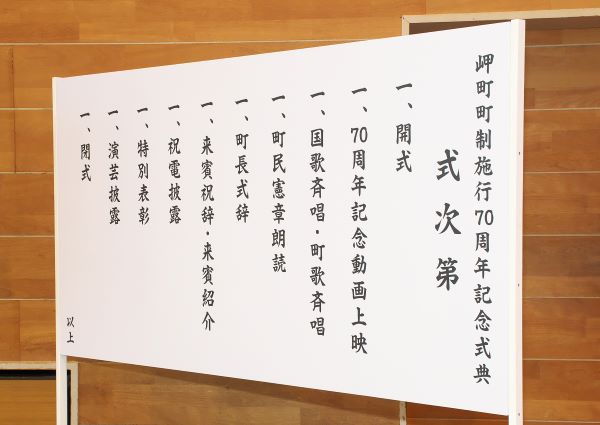 岬町町制施行70周年記念式典
式次第
一、開式
一、70周年記念動画上映
一、国歌斉唱・町歌斉唱
一、町民憲章朗読
一、町長式辞
一、来賓祝辞・来賓紹介
一、祝電披露
一、特別表彰
一、演芸披露
一、閉式
以上